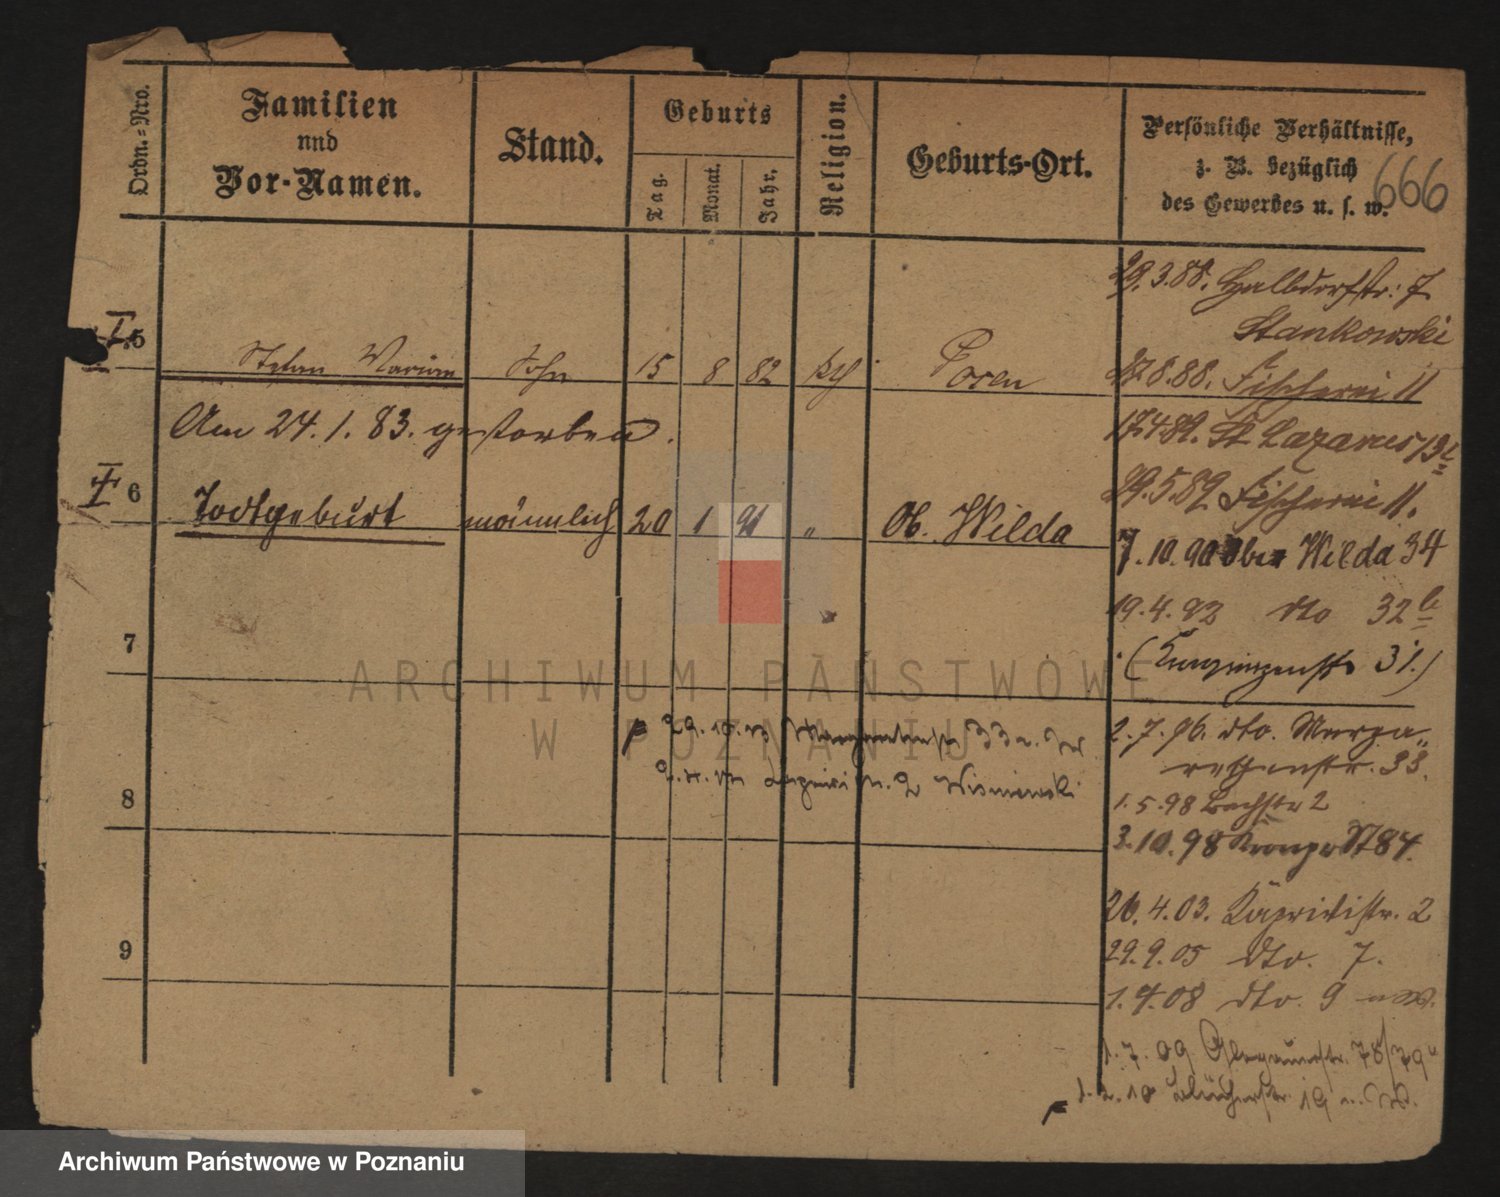 Ordn.=Nro.
Familien
und
Vor-Namen.
Stand.
Geburts
Tag.
Monat.
Jahr.
Religion.
Geburts-Ort.
Persönliche Verhältnisse,
z. B. bezüglich
des Gewerbes u. s. w.
666
I 5
Stefan Marian Sohn 15 8 82 kth Posen
Am 24. 1. 83. gestorben.
I 6
Todtgeburt männlich 20 1 91 " Ob. Wilda
7
8
9
29.3.88. Halbdorfstr: 7
Stankowski
27.8.88. Fischerei 11
17.4.89. St Lazarus 13
29.5.89 Fischerei 11.
7.10.90 Ober Wilda 34
19.4.92 dto 32 b
(Kronprinzenstr 31.)
2.7.96. dto. Marga-
rethenstr. 33.
1.5.98 Bachstr 2
3.10.98 Kronpr St 84.
26.4.03. Kaprivistr. 2
29.9.05 dto. 7.
1.4.08 dto. 9
1.7.09 Glogauerstr. 78/79
10 Blücherstr. 19
29.10. Margarethenstr 33
2 Wisniewski
ARCHIWUM PAŃSTWOWE
W POZNANIU
Archiwum Państwowe w Poznaniu